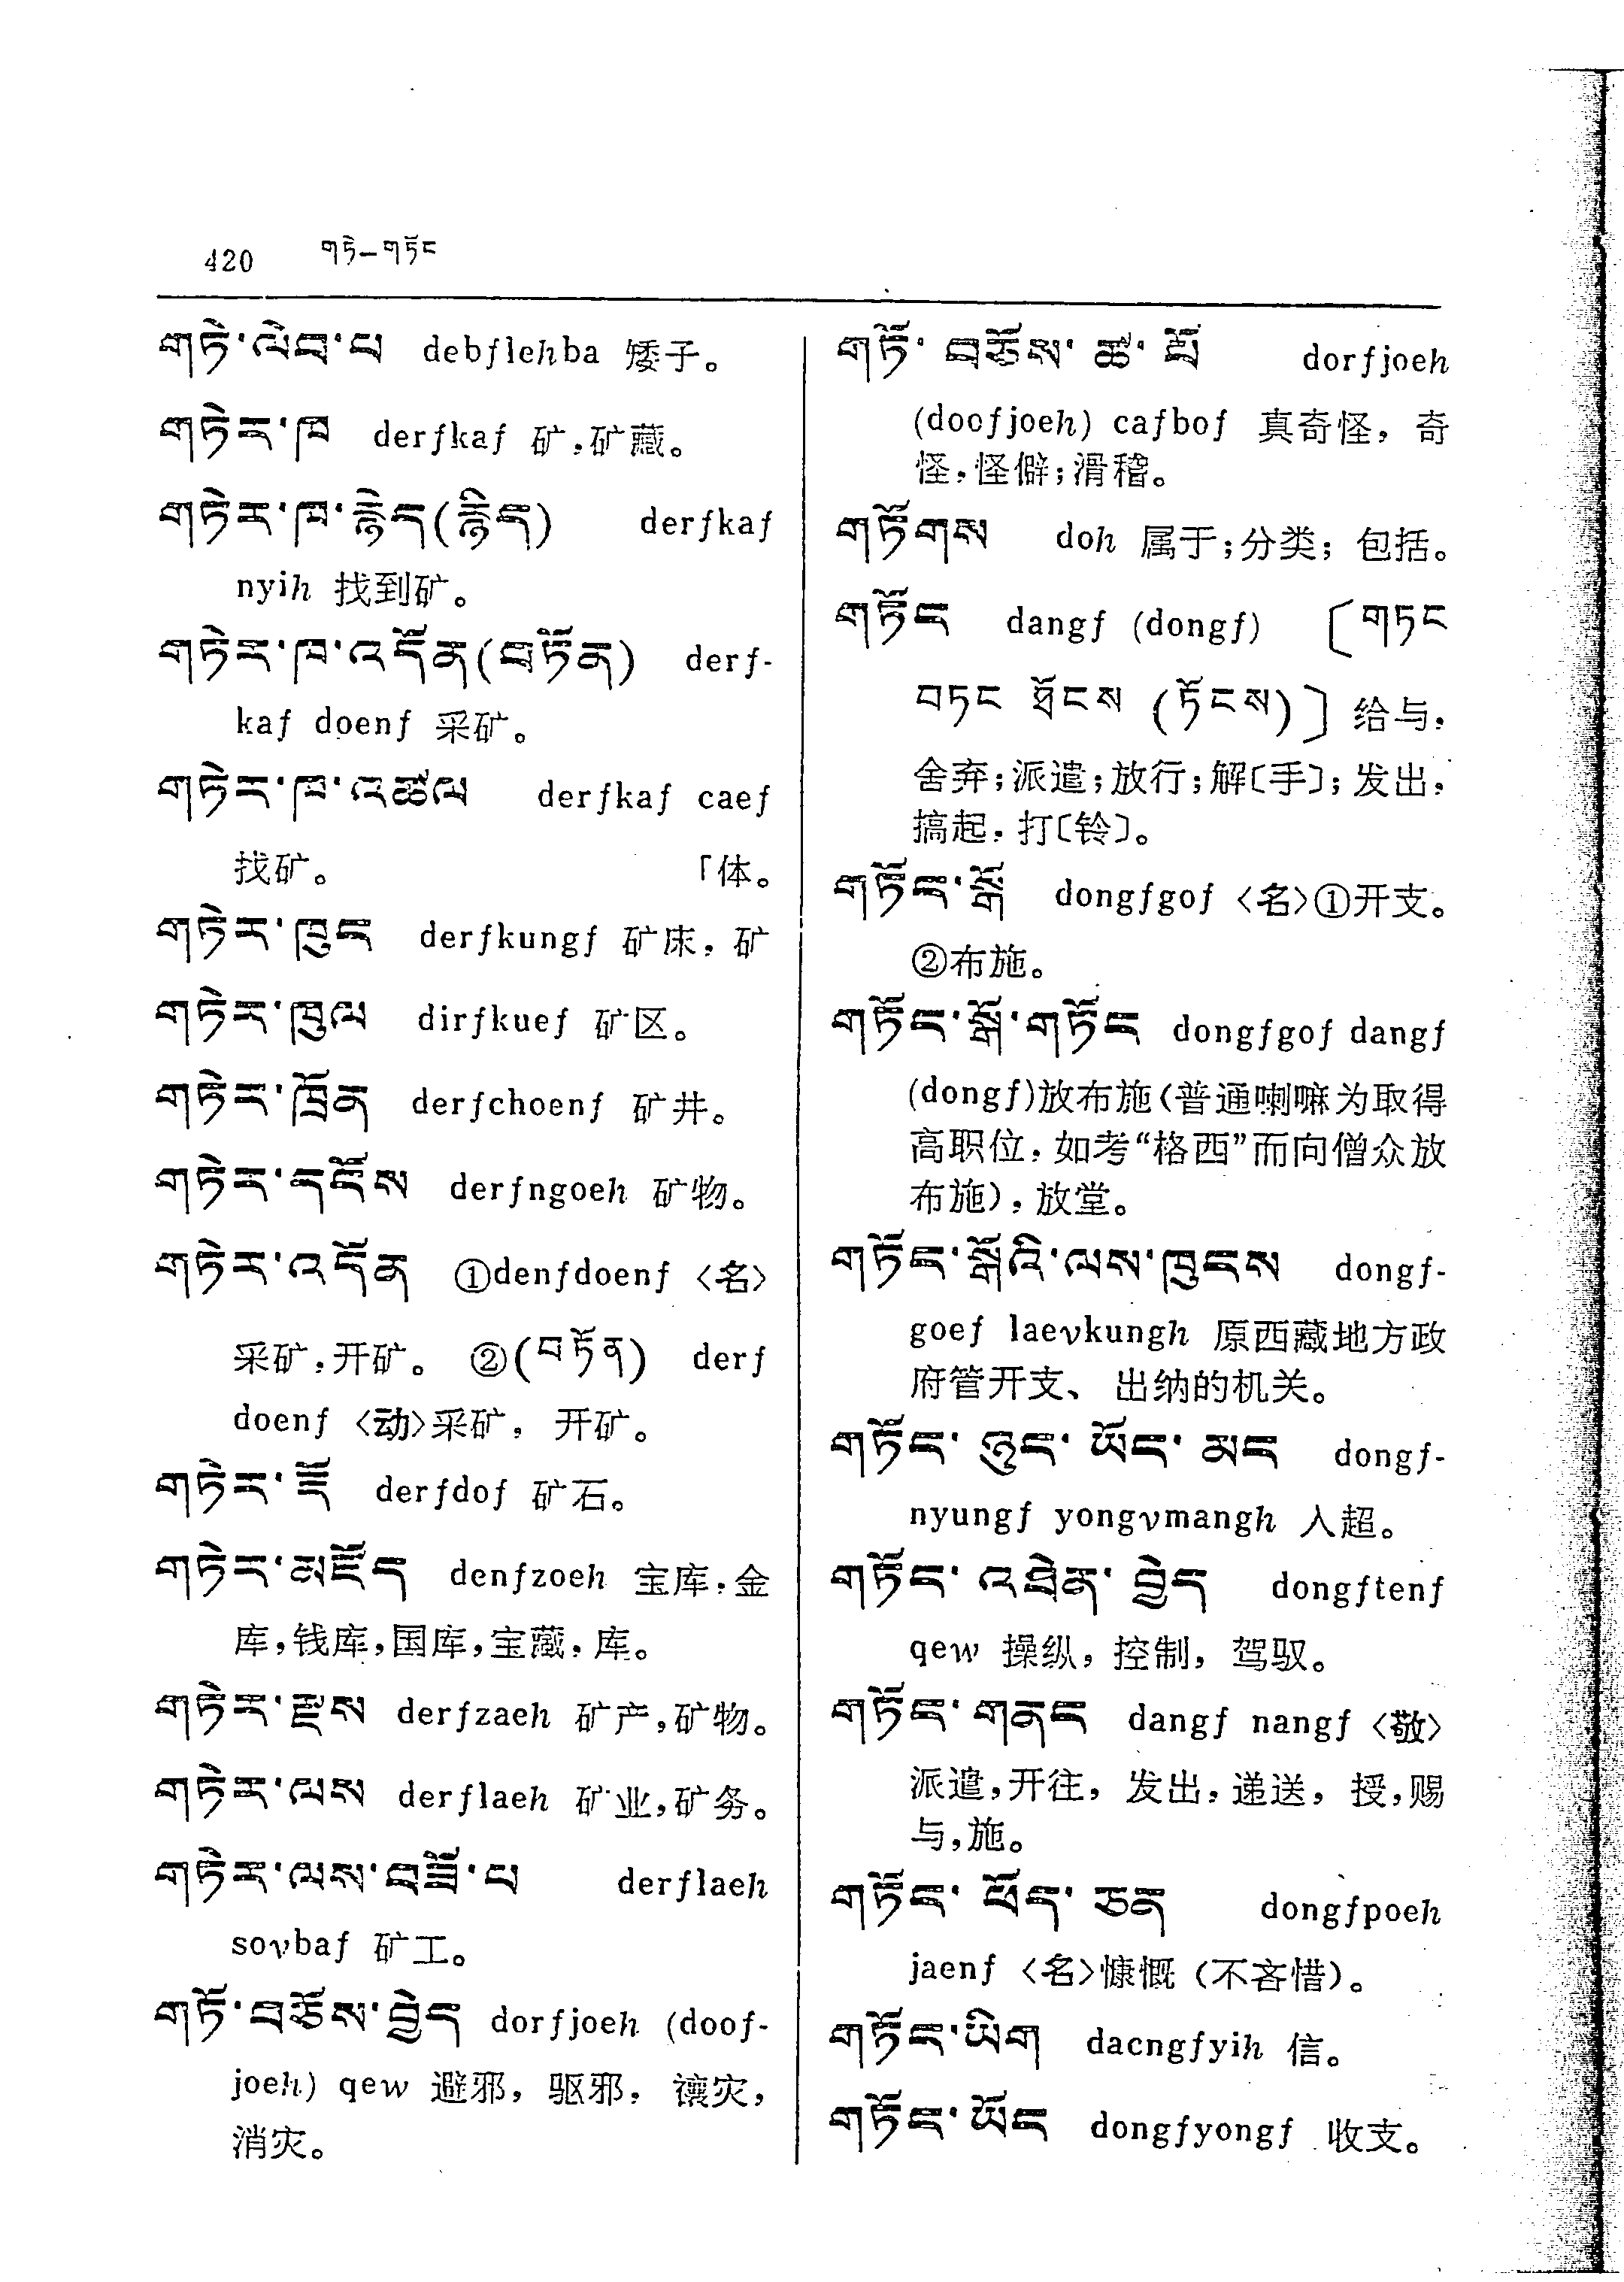 420 གཏེ—གཏོང
གཏེ་ལེབ་པ debflehba 矮子。
གཏེར་ཁ derfkaf 矿,矿藏。
གཏེར་ཁ་རྙེད(རྙིད) derfkaf
nyih 找到矿。
གཏེར་ཁ་འདོན(བཏོན) derf-
kaf doenf 采矿。
གཏེར་ཁ་འཚོལ derfkaf caef
找矿。 「体。
གཏེར་ཁུང derfkungf 矿床,矿
གཏེར་ཁུལ dirfkuef 矿区。
གཏེར་ཁྲོན derfchoenf 矿井。
གཏེར་དངོས derfngoeh 矿物。
གཏེར་འདོན ①denfdoenf〈名〉
采矿,开矿。 ②(བཏོན) derf
doenf〈动〉采矿, 开矿。
གཏེར་རྡོ derfdof 矿石。
གཏེར་མཛོད denfzoeh 宝库,金
库,钱库,国库,宝藏,库。
གཏེར་རྫས derfzaeh 矿产,矿物。
གཏེར་ལས derflaeh 矿业,矿务。
གཏེར་ལས་བཟོ་པ derflaeh
sovbaf 矿工。
གཏོ་བཅོས་བྱེད dorfjoeh (doof-
joeh) qew 避邪, 驱邪, 禳灾,
消灾。
གཏོ་ བཅོས་ ཚ་ པོ dorfjoeh
(doofjoeh) cafbof 真奇怪, 奇
怪,怪僻;滑稽。
གཏོགས doh 属于;分类; 包括。
གཏོང dangf (dongf) 〔གཏང
བཏང ཐོངས (ཏོངས)〕给与,
舍弃;派遣;放行;解〔手〕;发出,
搞起,打〔铃〕。
གཏོང་སྒོ dongfgof〈名〉①开支。
②布施。
གཏོང་སྒོ་གཏོང dongfgof dangf
(dongf)放布施(普通喇嘛为取得
高职位,如考“格西”而向僧众放
布施),放堂。
གཏོང་སྒོའི་ལས་ཁུངས dongf-
goef laevkungh 原西藏地方政
府管开支、 出纳的机关。
གཏོང་ ཉུང་ ཡོང་ མང dongf-
nyungf yongvmangh 入超。
གཏོང་ འཕེན་ བྱེད dongftenf
qew 操纵, 控制, 驾驭。
གཏོང་ གནང dangf nangf〈敬〉
派遣,开往, 发出,递送, 授,赐
与,施。
གཏོང་ ཕོད་ ཅན dongfpoeh
jaenf〈名〉慷慨(不吝惜)。
གཏོང་ཡིག dacngfyih 信。
གཏོང་ཡོང dongfyongf 收支。